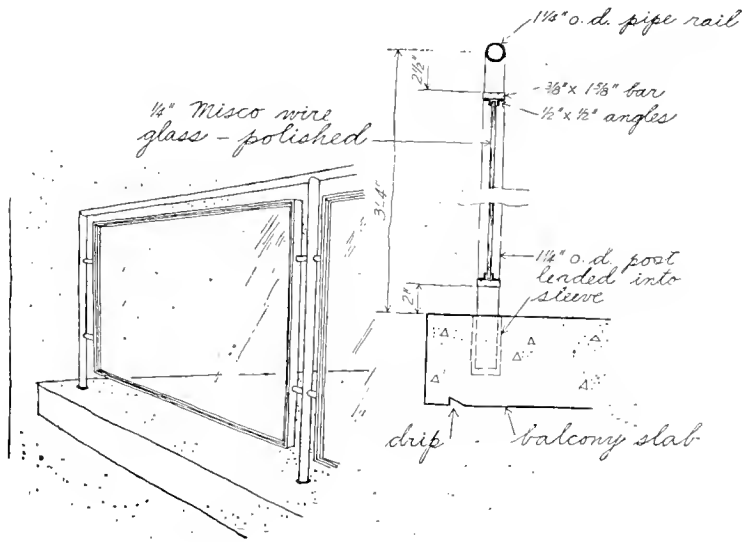 1¼" o.d. pipe rail
2½"
⅜" x 1⅝" bar
½" x ½" angles
¼" Misco wire
glass - polished
3'-4"
1¼" o.d. post
leaded into
sleeve
2"
drip
balcony slab